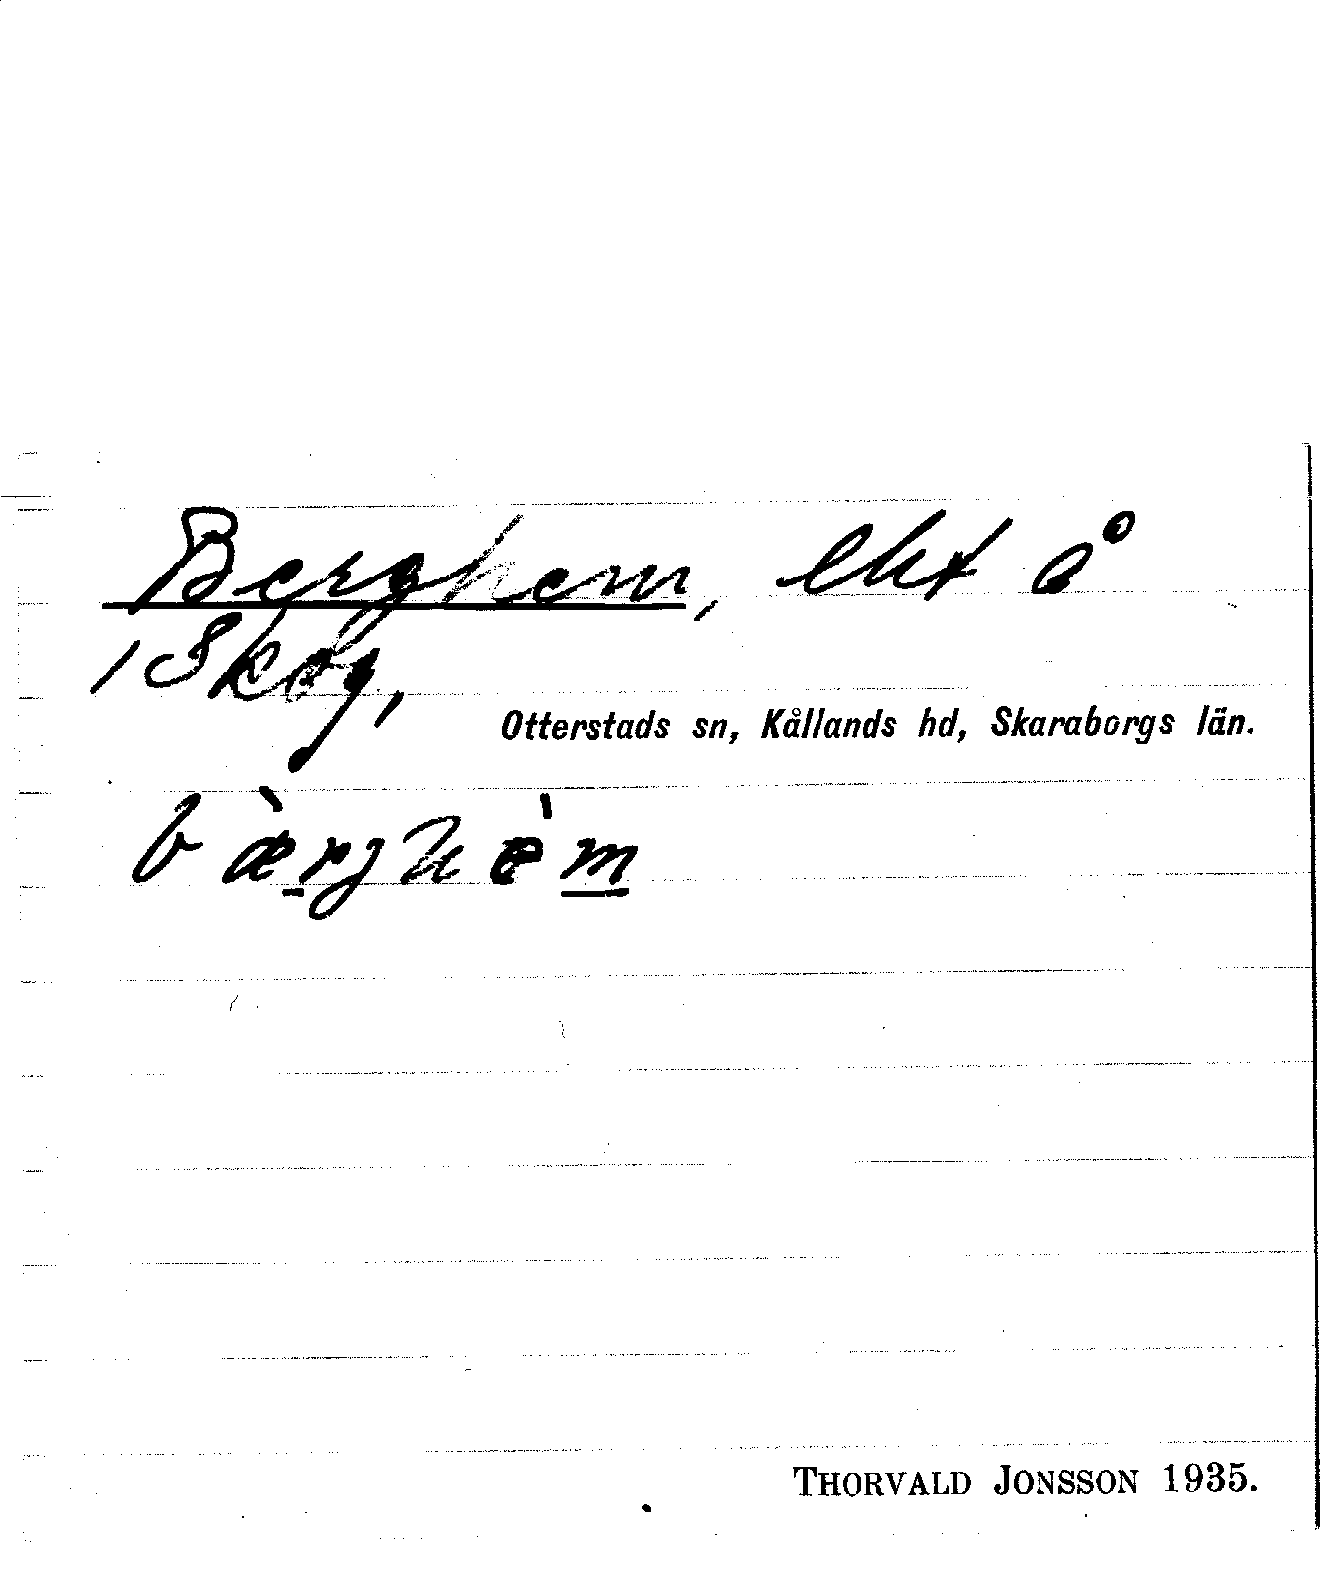 Berghem, lht å
1 Skog,
Otterstads sn, Kållands hd, Skaraborgs län.
bæ̀rghèm
THORVALD JONSSON 1935.